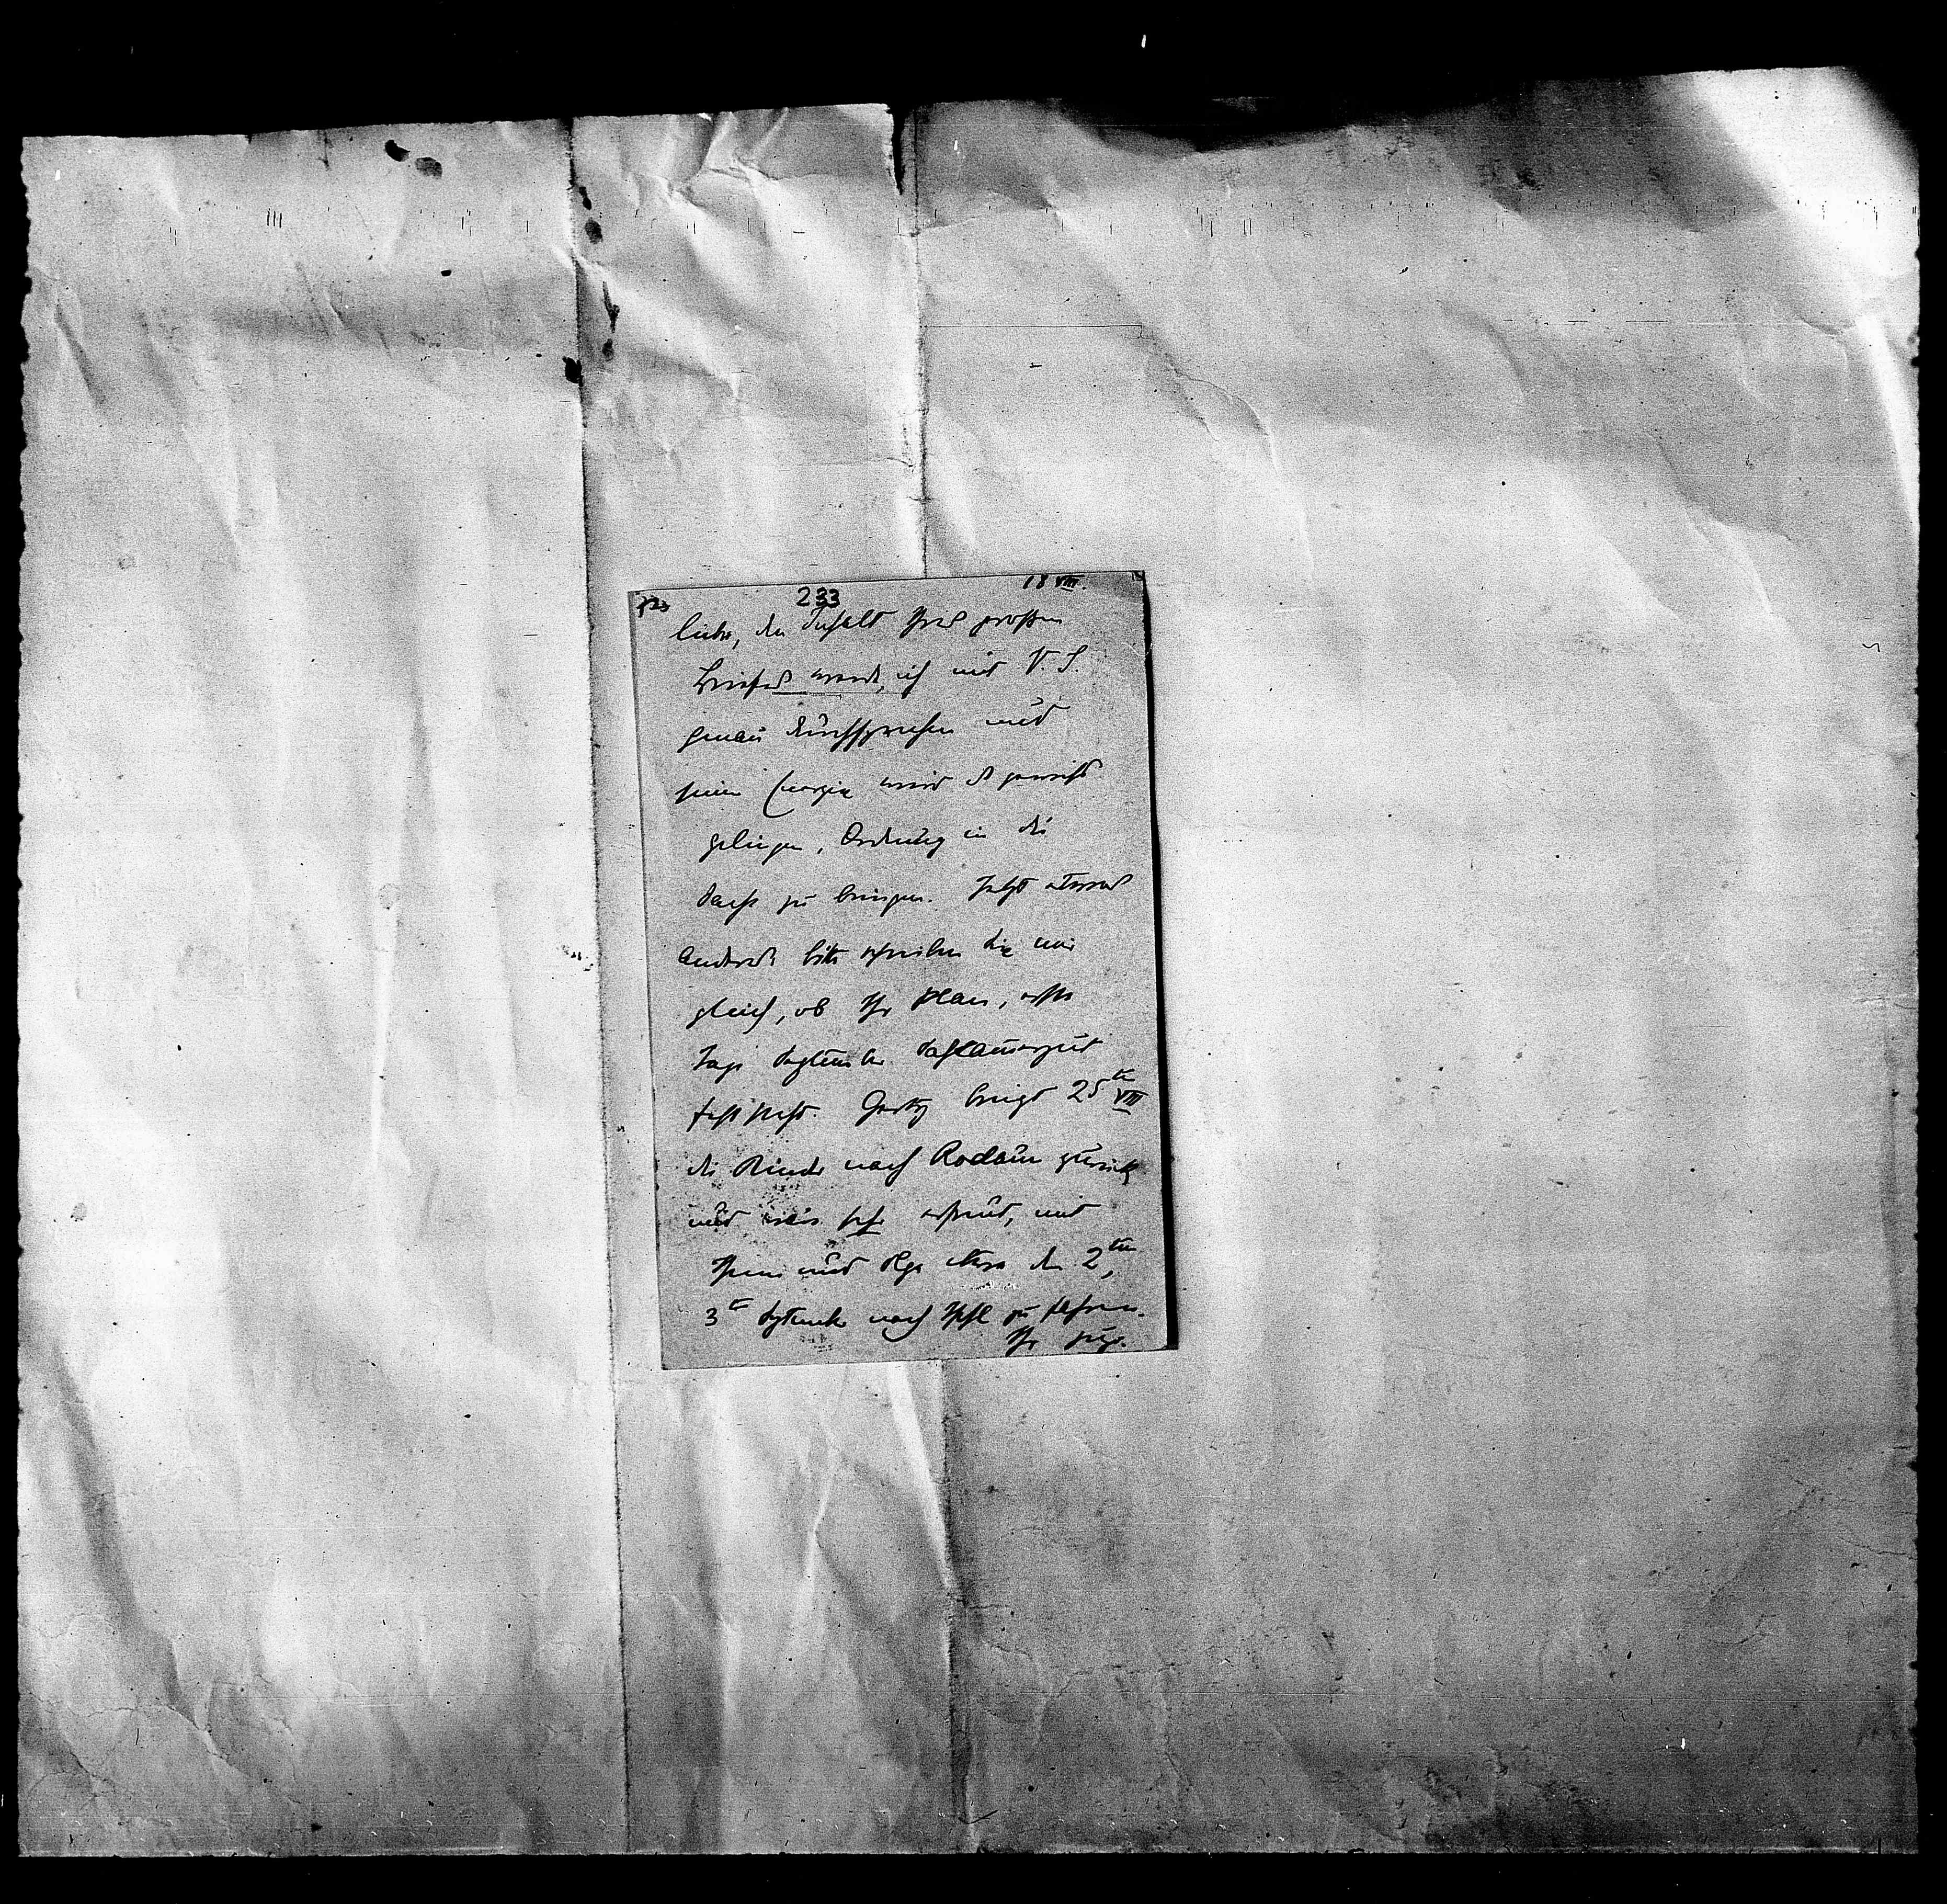 233
18 VIII.
lieber, den Inhalt Ihres grossen
Briefes werde ich mit V. S.
genau durchsprechen und
seiner Energie wird es gewiss
gelingen, Ordnung in die
Sache zu bringen. Jetzt etwas
anderes: bitte schreiben Sie mir
gleich, ob Ihr Plan, erste
Tage September Salzkammergut
feststeht. Gerty bringt 25ten VIII
die Kinder nach Rodaun zurück
und wäre sehr erfreut, mit
Ihnen und Olga etwa den 2ten,
3ten September nach Ischl zu fahren.
Ihr Hugo.